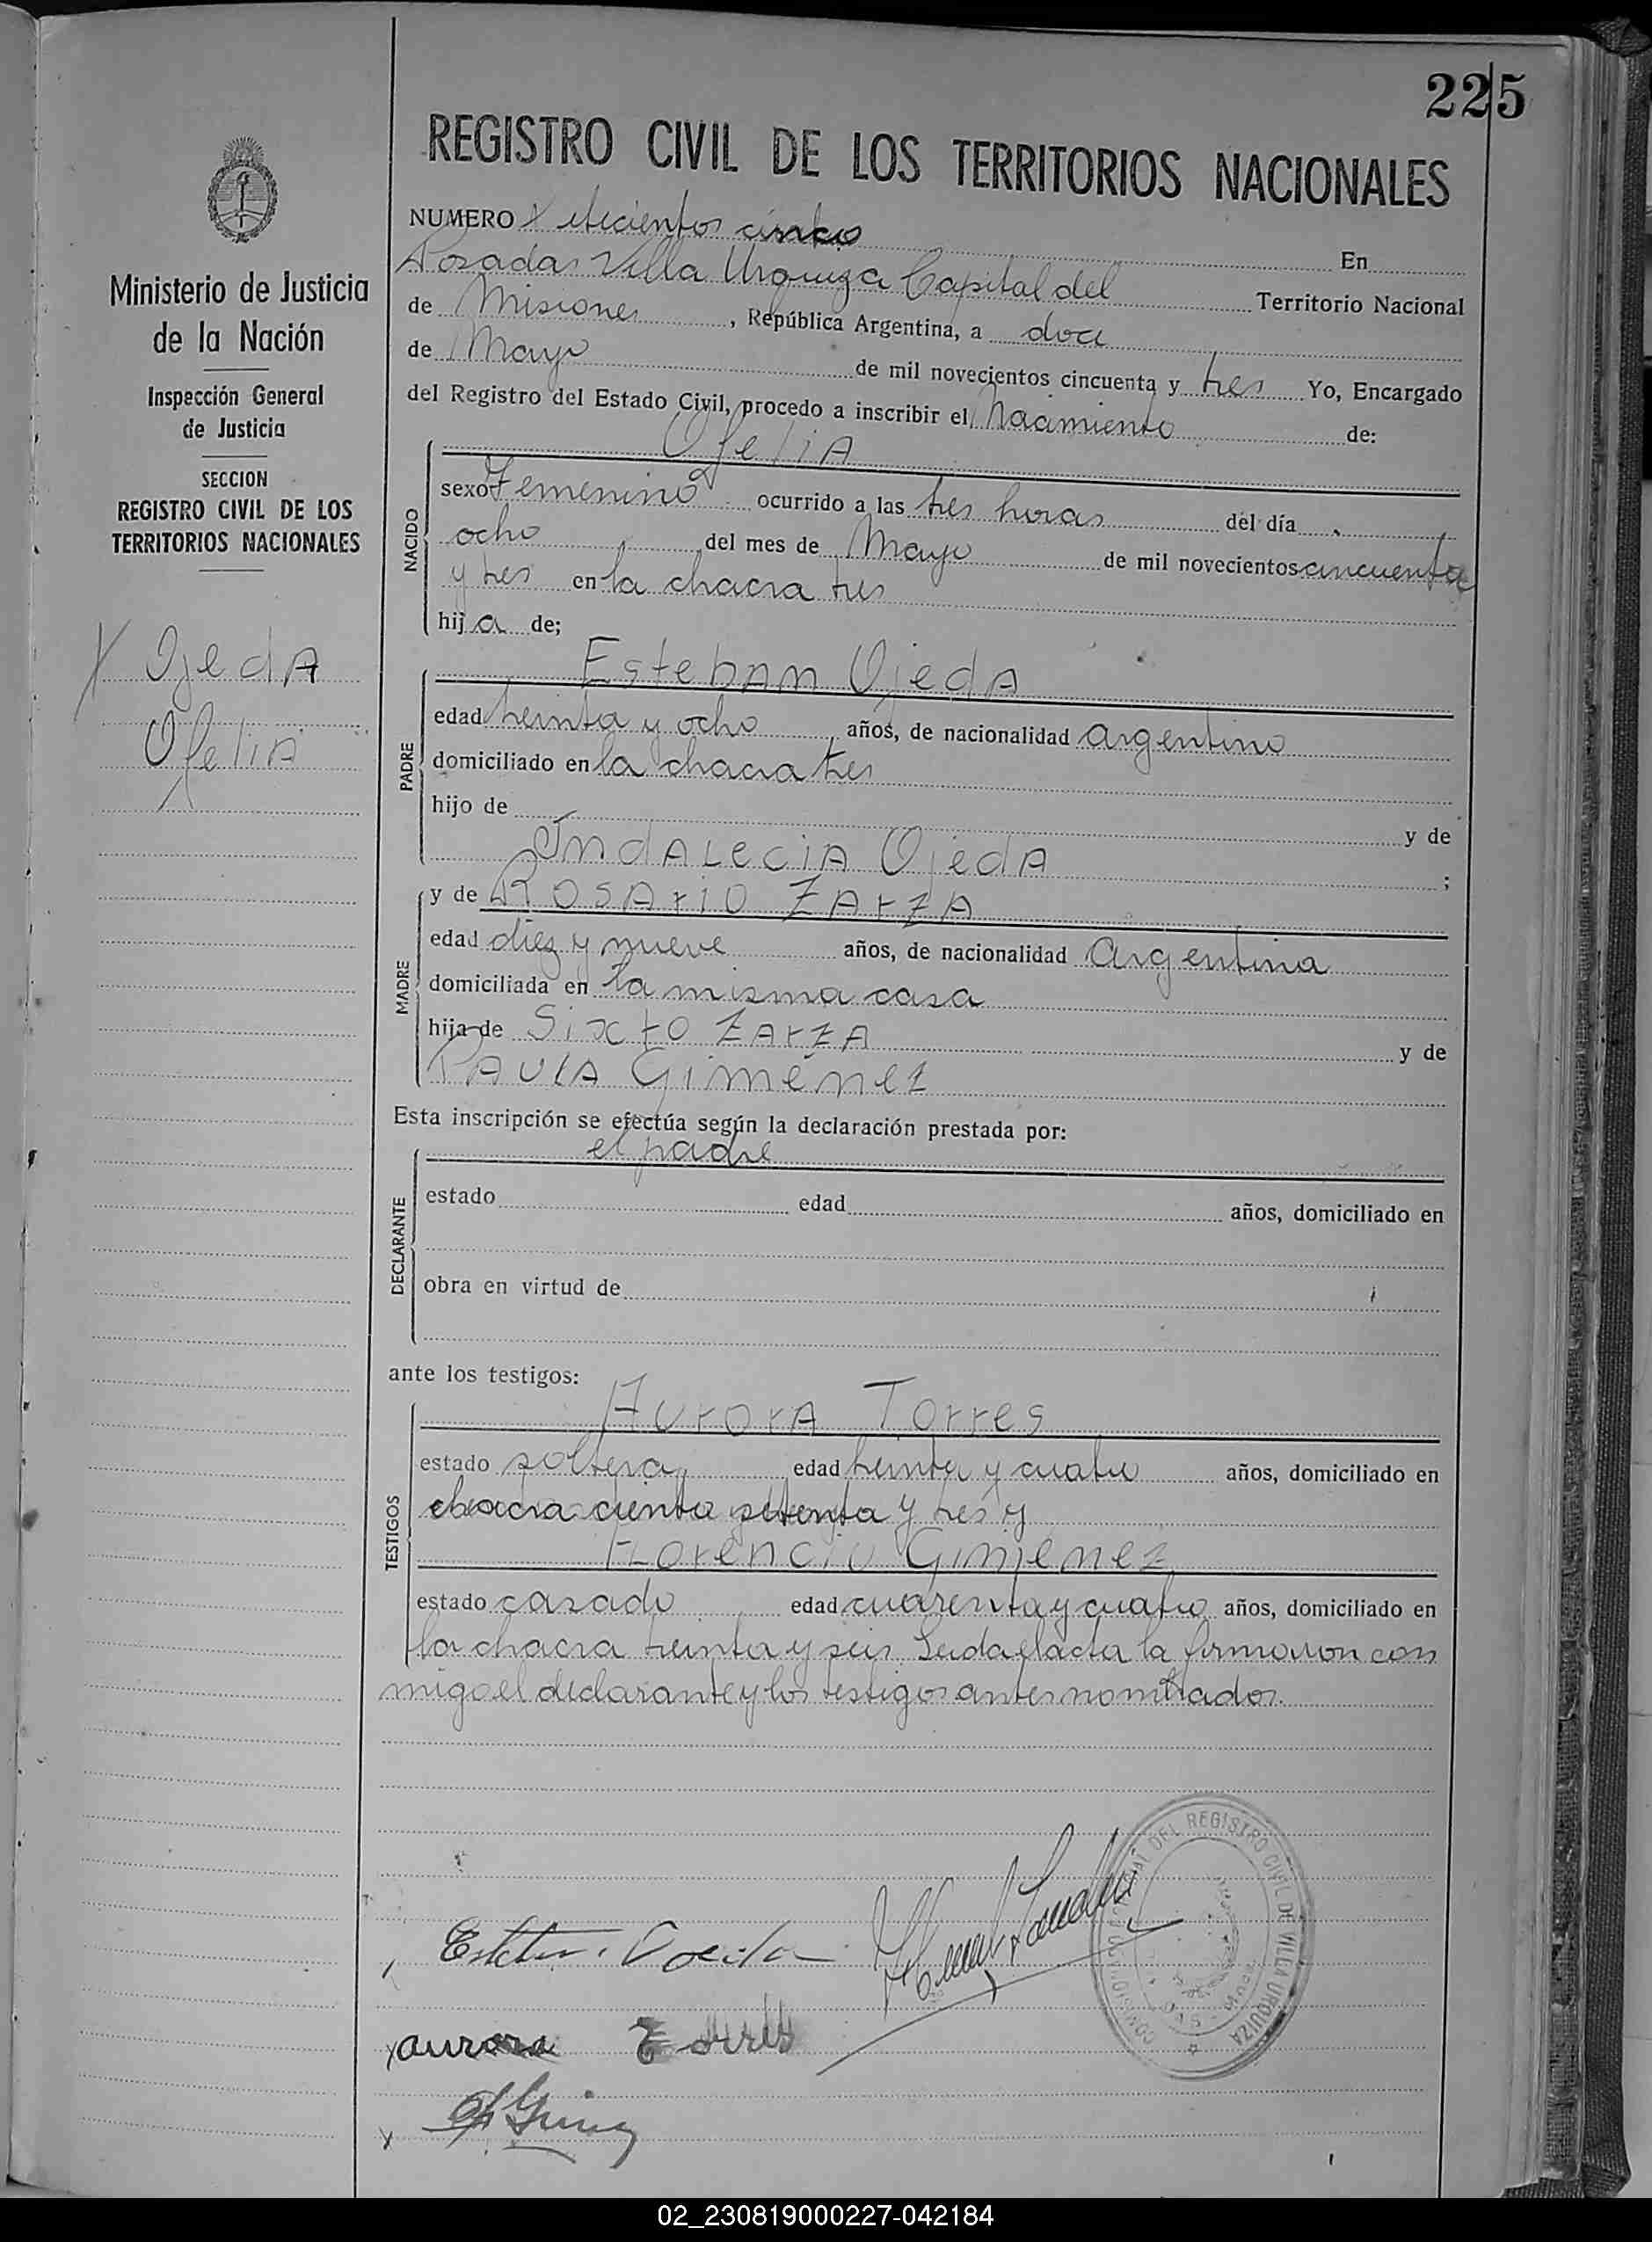 225
REGISTRO CIVIL DE LOS TERRITORIOS NACIONALES
Ministerio de Justicia
de la Nación
Inspección General
de Justicia
SECCION
REGISTRO CIVIL DE LOS
TERRITORIOS NACIONALES
X OjedA
OfeliA
NUMERO setecientos cinco En
Posadas Villa Urquiza Capital del Territorio Nacional
de Misiones, República Argentina, a doce
de Mayo de mil novecientos cincuenta y tres Yo, Encargado
del Registro del Estado Civil, procedo a inscribir el Nacimiento de:
OfeliA
NACIDO
sexo Femenino ocurrido a las tres horas del día
ocho del mes de Mayo de mil novecientos cincuenta
y tres en la chacra tres
hija de;
EstebAn OjedA
PADRE
edad treinta y ocho años, de nacionalidad argentino
domiciliado en la chacra tres
hijo de y de
IndALeciA OjedA ;
MADRE
y de ROSArio ZArzA
edad diez y nueve años, de nacionalidad Argentina
domiciliada en la misma casa
hija de Sixto ZArzA y de
PAULA Giménez
Esta inscripción se efectúa según la declaración prestada por:
el padre
DECLARANTE
estado edad años, domiciliado en
obra en virtud de
ante los testigos:
AurorA Torres
TESTIGOS
estado soltera, edad treinta y cuatro años, domiciliado en
chacra ciento setenta y tres y
FLorencio Gimenez
estado casado edad cuarenta y cuatro años, domiciliado en
la chacra treinta y seis. Leida el acta la firmaron con
migo el declarante y los testigos antes nombrados.
Esteban Ojeda
DEL REGISTRO CIVIL DE VILLA URQUIZA
aurora Torres
02_230819000227-042184